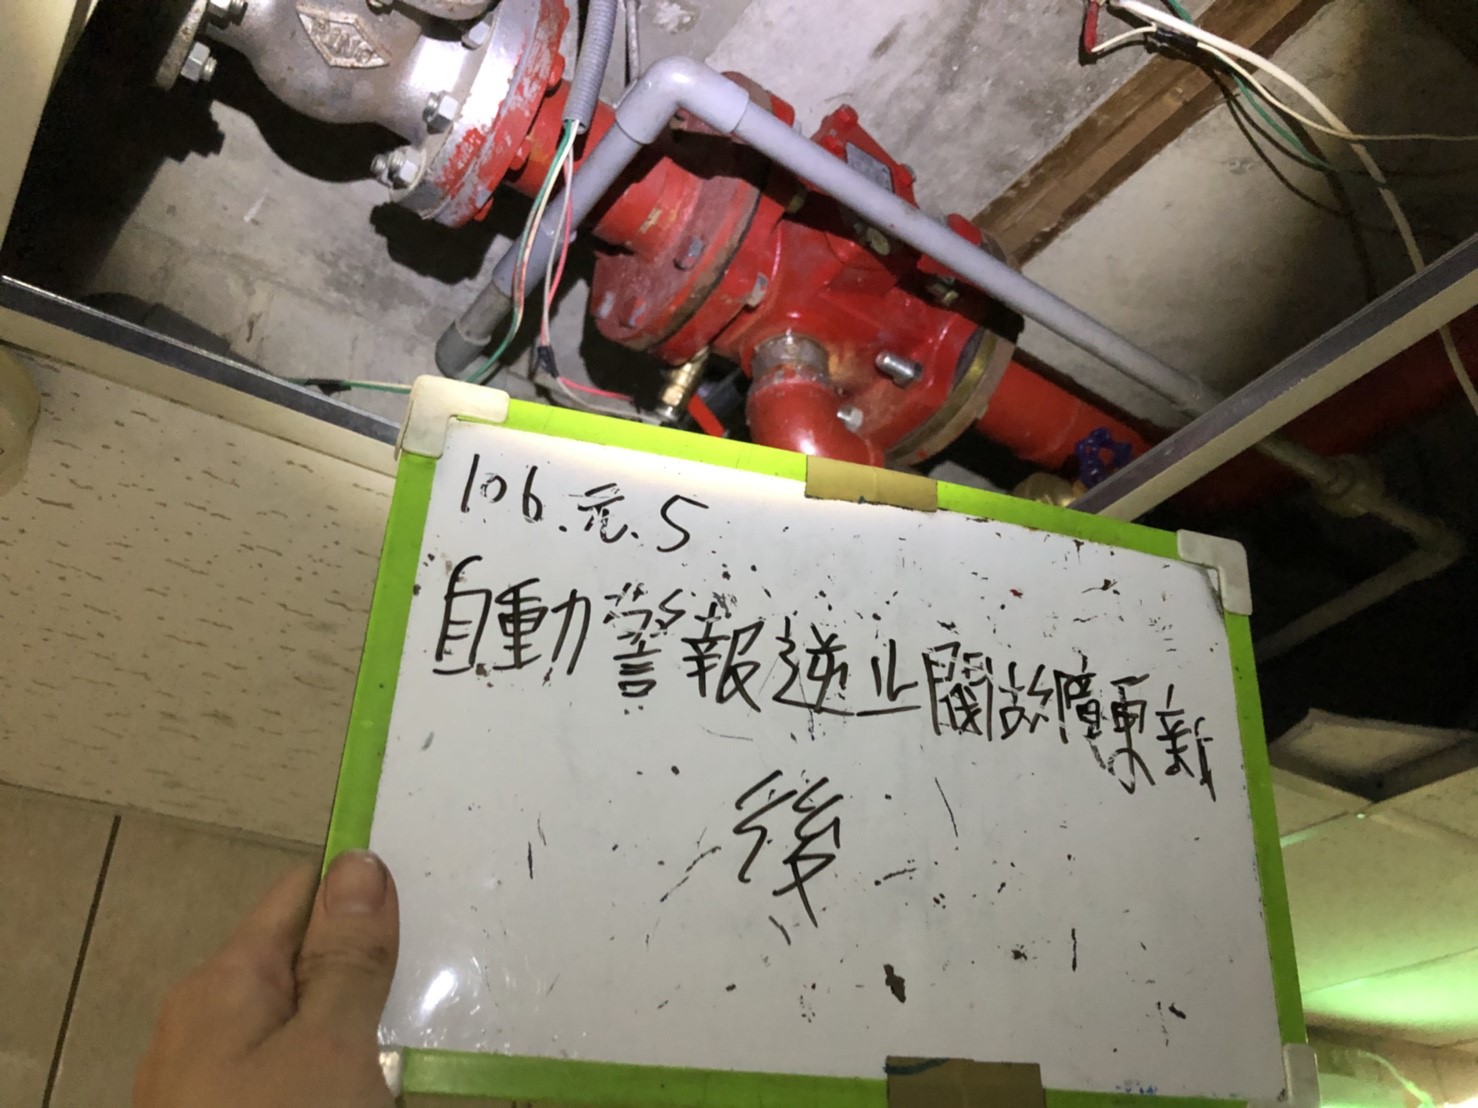 106.元.5
自動警報逆止閥故障更新
後